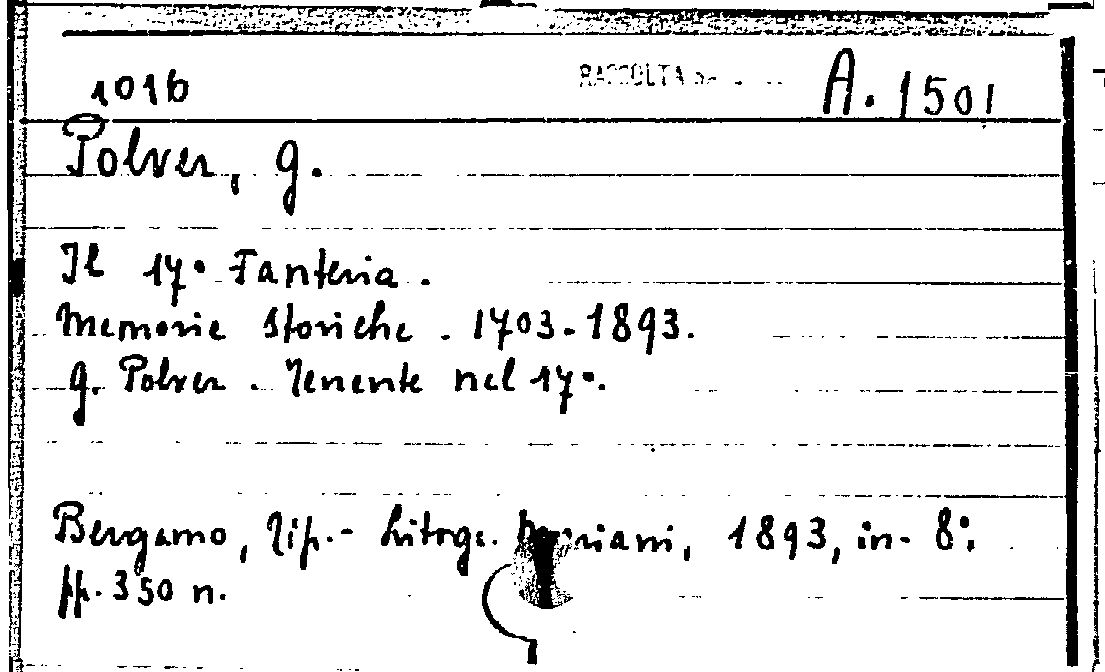 1016 RACCOLTA A. 1501
Polver, G.
Il 17° Fanteria.
Memorie Storiche. 1703-1893.
G. Polver. Tenente nel 17°.
Bergamo, Tip.- Litogr. 1893, in- 8°.
pp. 350 n.